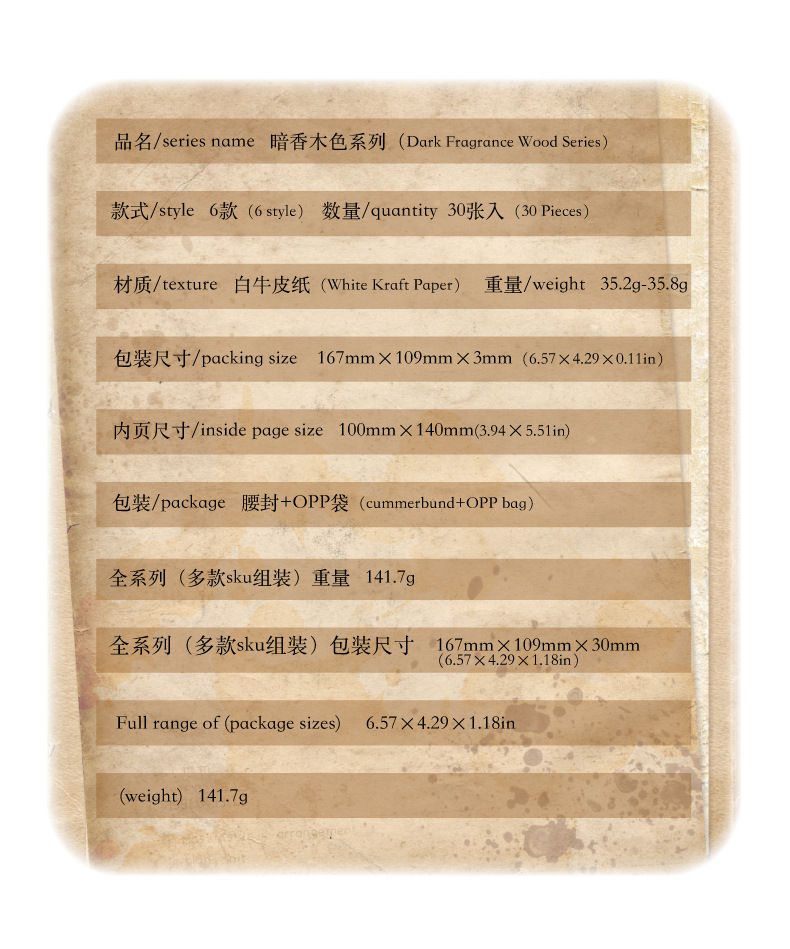 品名/series name 暗香木色系列（Dark Fragrance Wood Series）
款式/style 6款（6 style） 数量/quantity 30张入（30 Pieces）
材质/texture 白牛皮纸（White Kraft Paper） 重量/weight 35.2g-35.8g
包装尺寸/packing size 167mm×109mm×3mm（6.57×4.29×0.11in）
内页尺寸/inside page size 100mm×140mm(3.94×5.51in)
包装/package 腰封+OPP袋（cummerbund+OPP bag）
全系列（多款sku组装）重量 141.7g
全系列（多款sku组装）包装尺寸 167mm×109mm×30mm
（6.57×4.29×1.18in）
Full range of (package sizes) 6.57×4.29×1.18in
(weight) 141.7g
arrangement